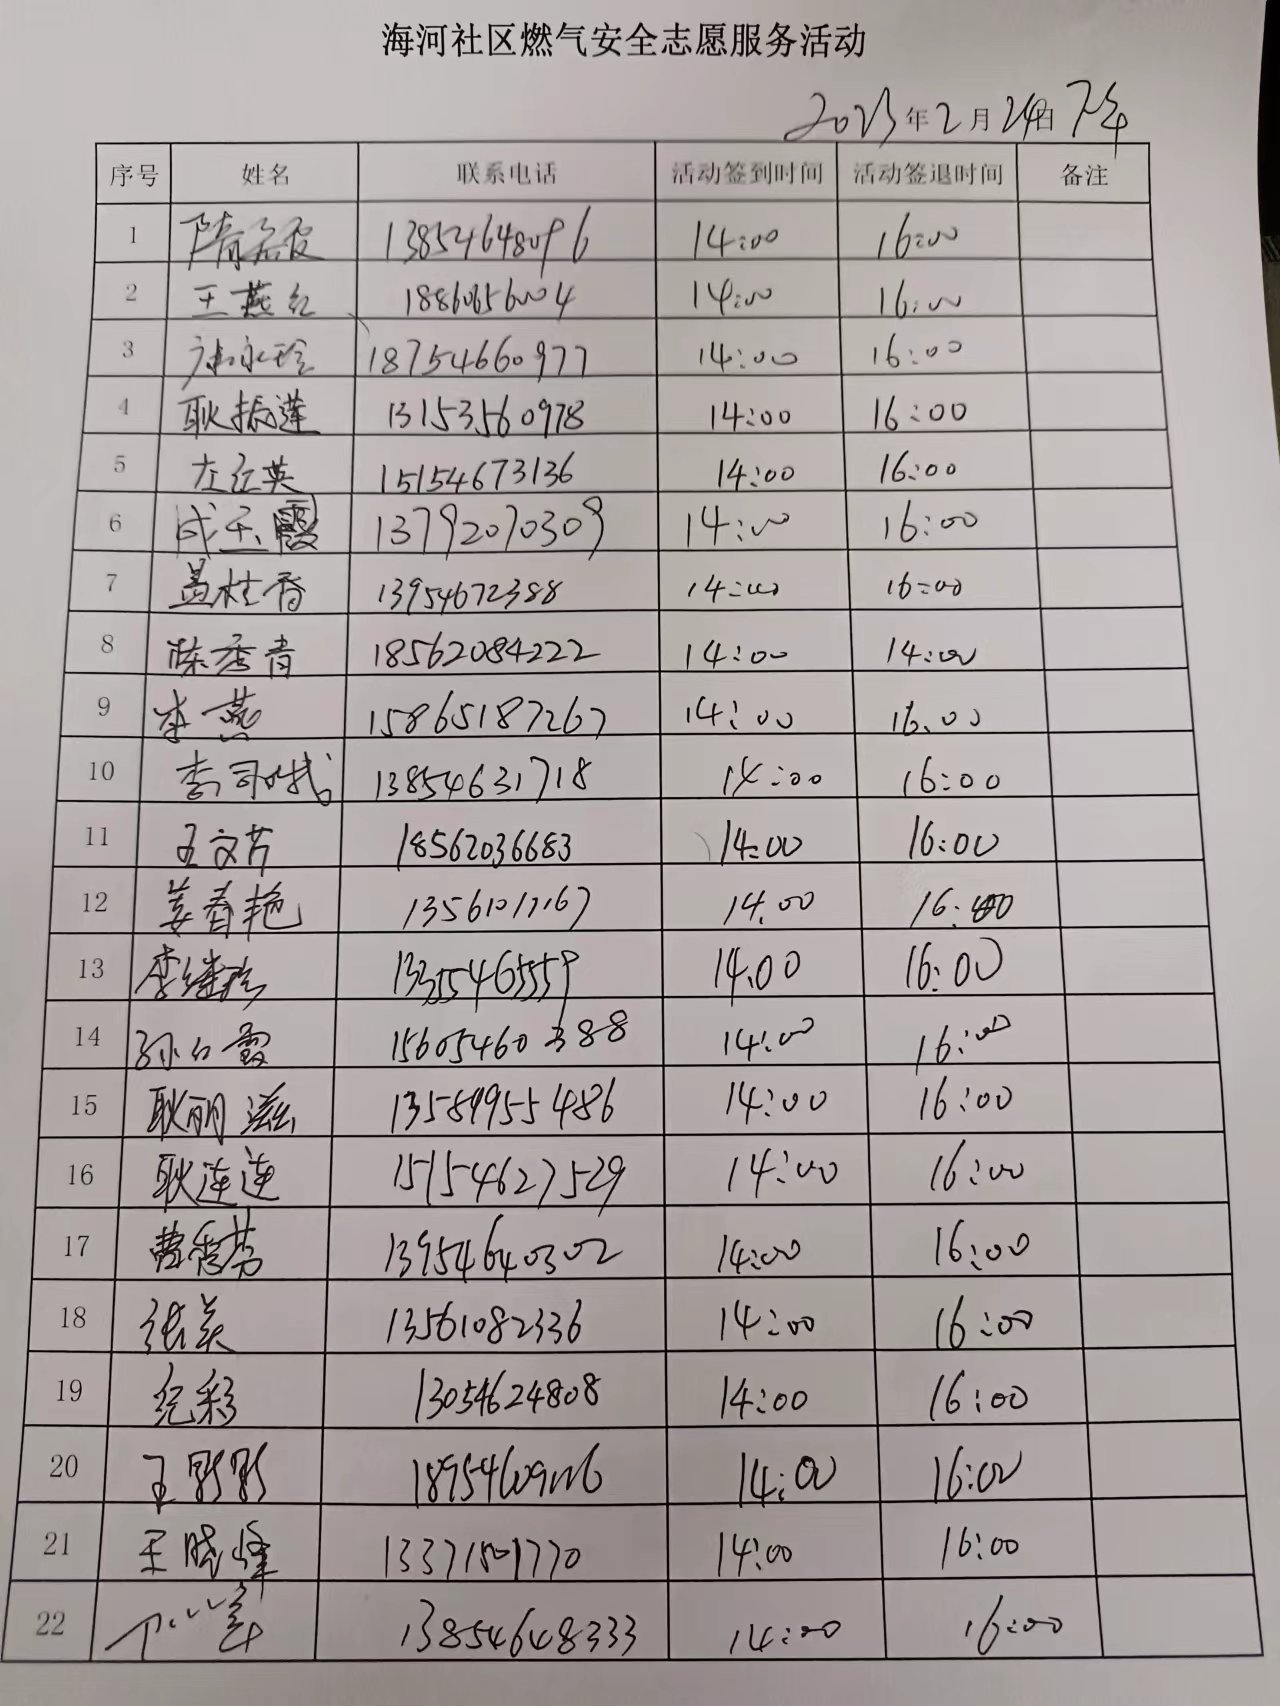 海河社区燃气安全志愿服务活动
2023年2月24日 下午
序号 姓名 联系电话 活动签到时间 活动签退时间 备注
1 13854648096 14:00 16:00
2 王燕红 18860656004 14:00 16:00
3 18754660977 14:00 16:00
4 耿振莲 13153560978 14:00 16:00
5 左红英 15154673136 14:00 16:00
6 成玉霞 13792070309 14:00 16:00
7 盖桂香 13954672388 14:00 16:00
8 陈秀青 18562084222 14:00 14:00
9 李燕 15865187267 14:00 16:00
10 13854631718 14:00 16:00
11 王文芳 18562036683 14:00 16:00
12 姜春艳 14:00 16:00
13 李继珍 13355465559 14:00 16:00
14 孙红霞 15605460388 14:00 16:00
15 耿丽滋 13589955486 14:00 16:00
16 耿连连 15154627529 14:00 16:00
17 曹秀芳 13954640302 14:00 16:00
18 张美 13561082336 14:00 16:00
19 纪彩 13054624808 14:00 16:00
20 王彤彤 14:00 16:00
21 王晓峰 13371501770 14:00 16:00
22 13854648333 14:00 16:00